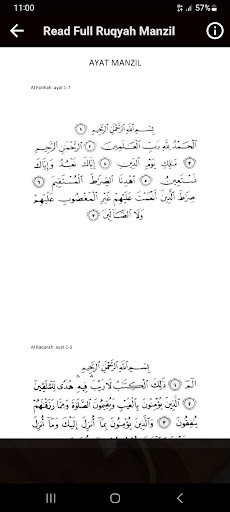 11:00
57%
Read Full Ruqyah Manzil
AYAT MANZIL
Al Fatihah: ayat 1-7
بِسْمِ اللَّهِ الرَّحْمَٰنِ الرَّحِيمِ ١
الْحَمْدُ لِلَّهِ رَبِّ الْعَالَمِينَ ٢ الرَّحْمَٰنِ الرَّحِيمِ
٣ مَالِكِ يَوْمِ الدِّينِ ٤ إِيَّاكَ نَعْبُدُ وَإِيَّاكَ
نَسْتَعِينُ ٥ اهْدِنَا الصِّرَاطَ الْمُسْتَقِيمَ ٦
صِرَاطَ الَّذِينَ أَنْعَمْتَ عَلَيْهِمْ غَيْرِ الْمَغْضُوبِ عَلَيْهِمْ
وَلَا الضَّالِّينَ ٧
Al Baqarah: ayat 1-5
بِسْمِ اللَّهِ الرَّحْمَٰنِ الرَّحِيمِ
الم ١ ذَٰلِكَ الْكِتَابُ لَا رَيْبَ فِيهِ هُدًى لِلْمُتَّقِينَ
٢ الَّذِينَ يُؤْمِنُونَ بِالْغَيْبِ وَيُقِيمُونَ الصَّلَاةَ وَمِمَّا رَزَقْنَاهُمْ
يُنْفِقُونَ ٣ وَالَّذِينَ يُؤْمِنُونَ بِمَا أُنْزِلَ إِلَيْكَ وَمَا أُنْزِلَ